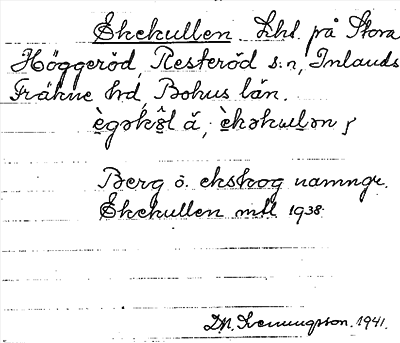 Ekekullen. Lht. på Stora
Höggeröd, Resteröd s:n, Inlands
Fräkne hd, Bohus län.
ègəkŏ̀l ă, èkəkulən
Berg o. ekskog namngr.
Ekekullen mtl 1938.
DN. Svenningsson. 1941.